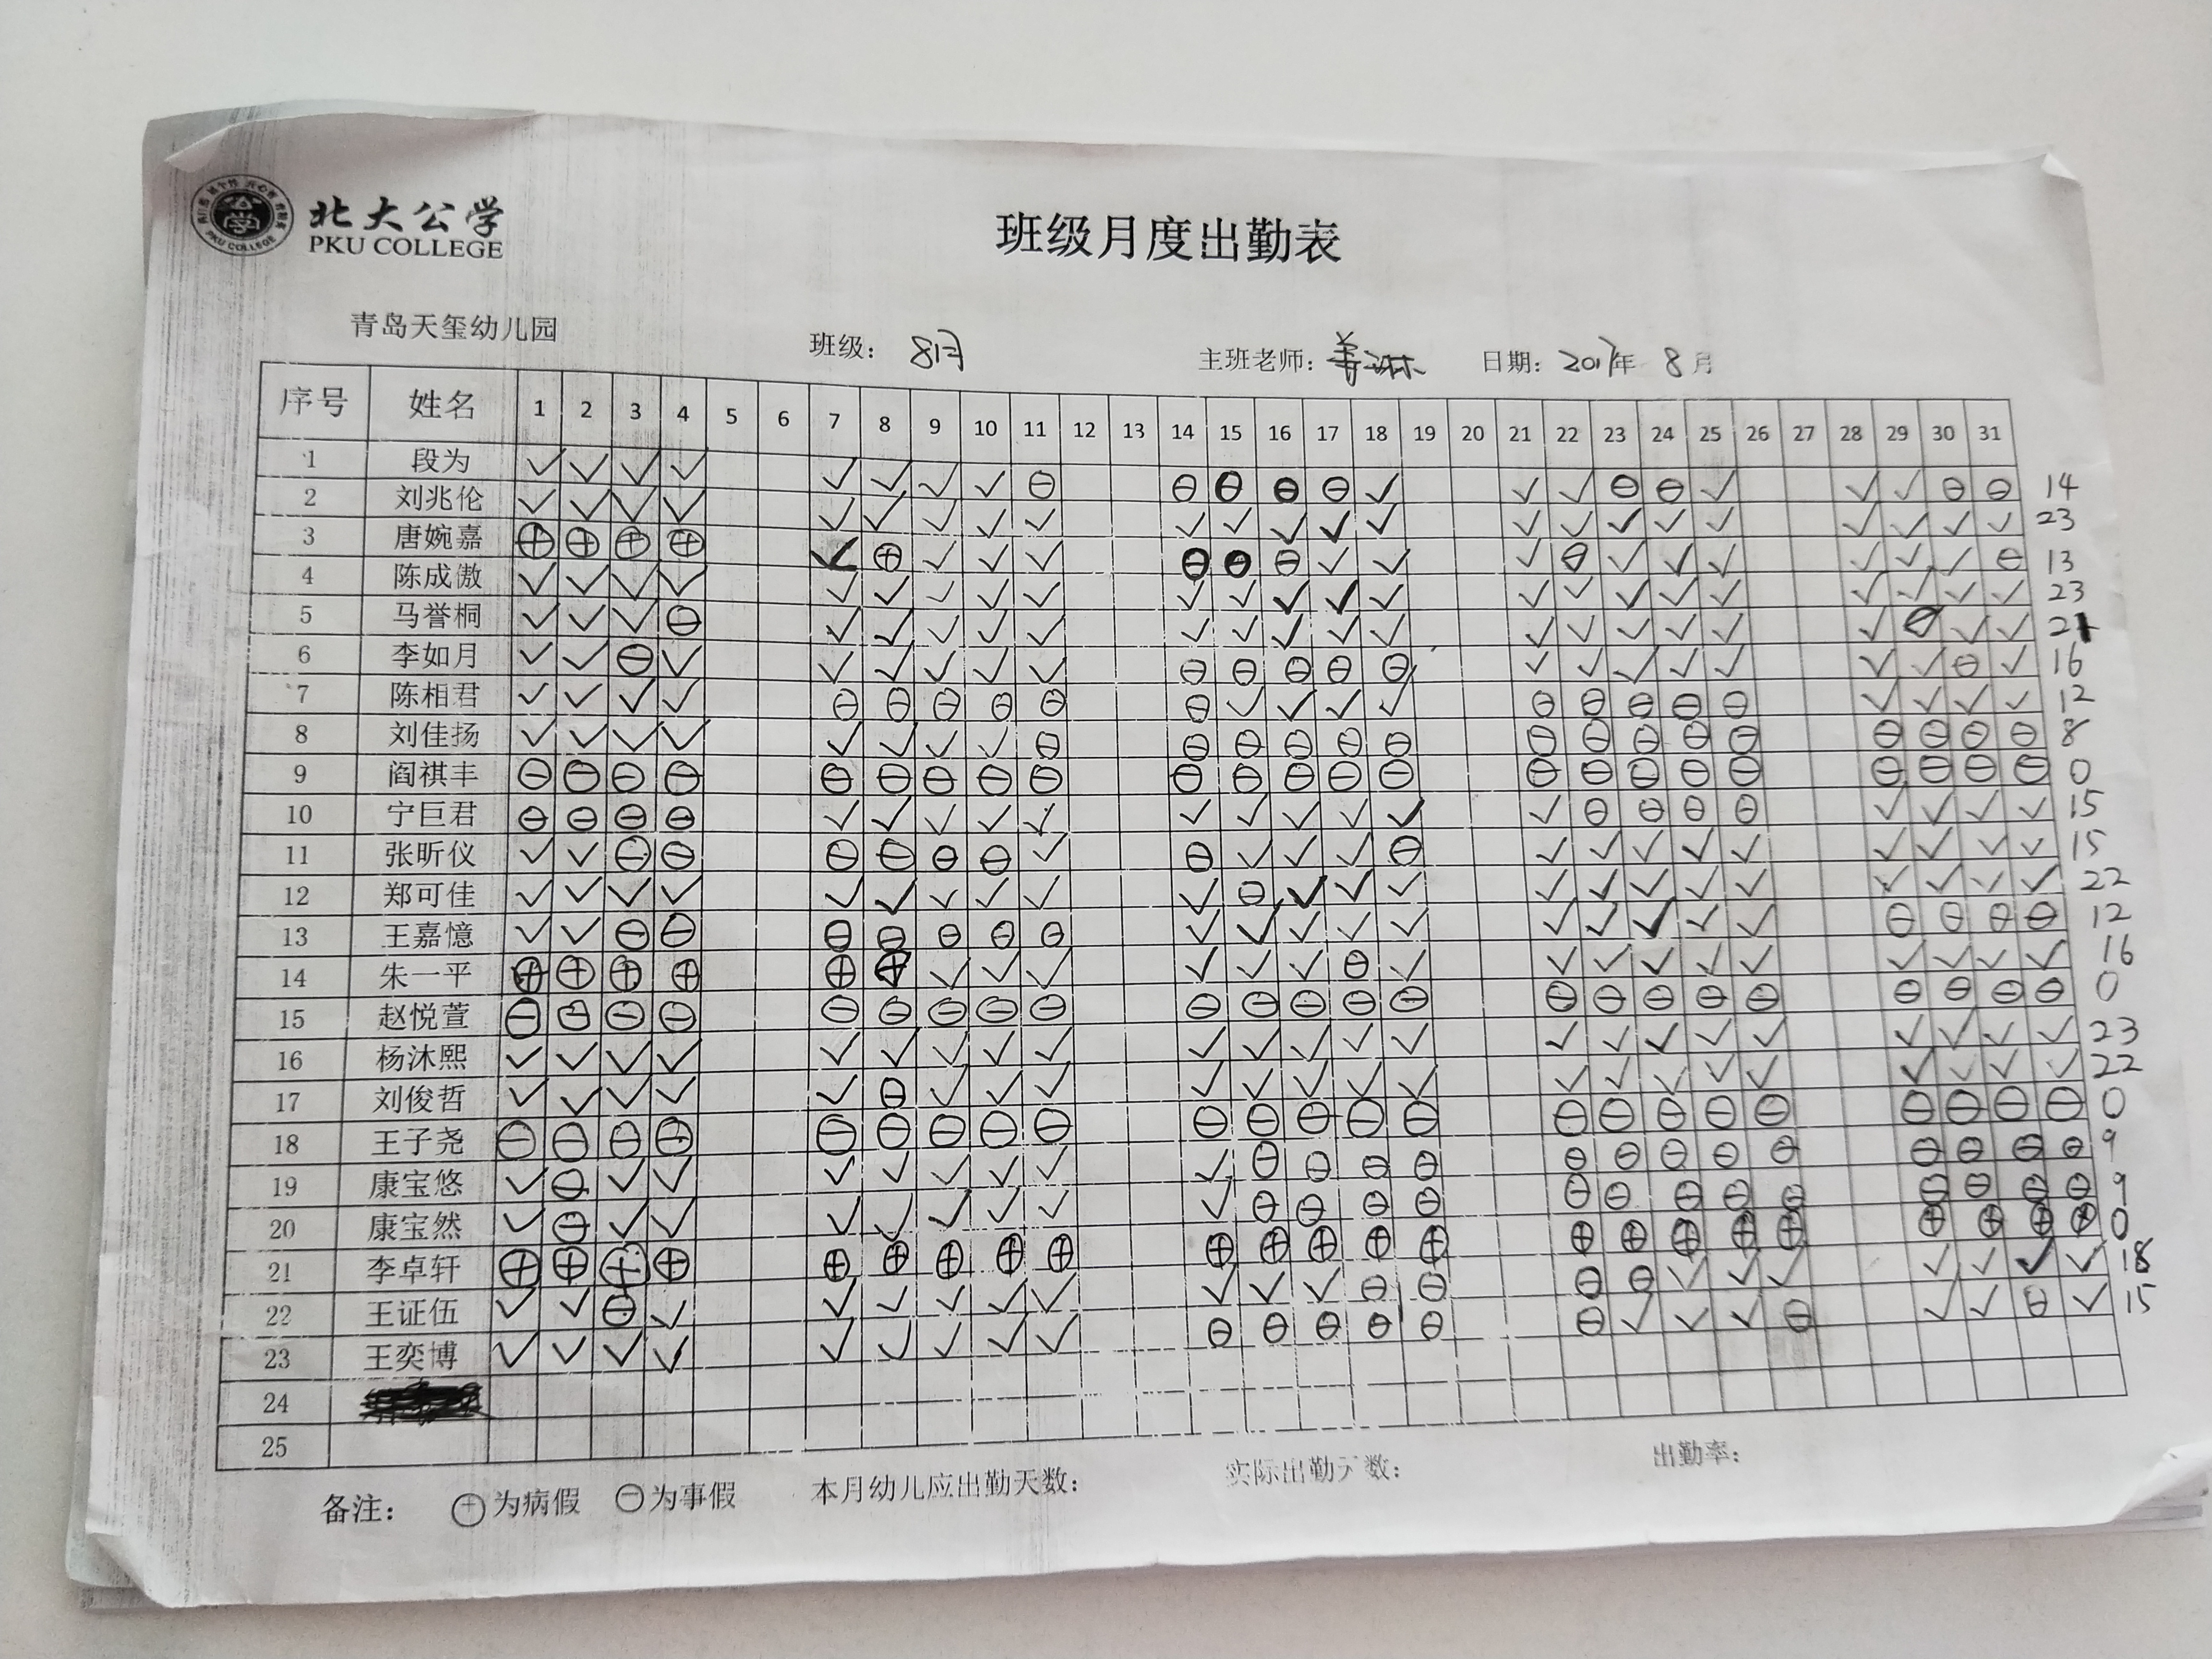 北大公学
PKU COLLEGE
班级月度出勤表
青岛天玺幼儿园 班级: 8月 主班老师: 姜琳 日期: 2017年 8月
序号 姓名 1 2 3 4 5 6 7 8 9 10 11 12 13 14 15 16 17 18 19 20 21 22 23 24 25 26 27 28 29 30 31
1 段为 ✓ ✓ ✓ ✓ ✓ ✓ ✓ ✓ ⊖ ⊖ ⊖ ⊖ ⊖ ✓ ✓ ✓ ⊖ ⊖ ✓ ✓ ✓ ⊖ ⊖ 14
2 刘兆伦 ✓ ✓ ✓ ✓ ✓ ✓ ✓ ✓ ✓ ✓ ✓ ✓ ✓ ✓ ✓ ✓ ✓ ✓ ✓ ✓ ✓ ✓ ✓ 23
3 唐婉嘉 ⊕ ⊕ ⊕ ⊕ ✓ ⊕ ✓ ✓ ✓ ⊖ ⊖ ⊖ ✓ ✓ ✓ ⊖ ✓ ✓ ✓ ✓ ✓ ✓ ⊖ 13
4 陈成傲 ✓ ✓ ✓ ✓ ✓ ✓ ✓ ✓ ✓ ✓ ✓ ✓ ✓ ✓ ✓ ✓ ✓ ✓ ✓ ✓ ✓ ✓ ✓ 23
5 马誉桐 ✓ ✓ ✓ ⊖ ✓ ✓ ✓ ✓ ✓ ✓ ✓ ✓ ✓ ✓ ✓ ✓ ✓ ✓ ✓ ✓ ⊖ ✓ ✓ 21
6 李如月 ✓ ✓ ⊖ ✓ ✓ ✓ ✓ ✓ ✓ ⊖ ⊖ ⊖ ⊖ ⊖ ✓ ✓ ✓ ✓ ✓ ✓ ✓ ⊖ ✓ 16
7 陈相君 ✓ ✓ ✓ ✓ ⊖ ⊖ ⊖ ⊖ ⊖ ⊖ ✓ ✓ ✓ ✓ ⊖ ⊖ ⊖ ⊖ ⊖ ✓ ✓ ✓ ✓ 12
8 刘佳扬 ✓ ✓ ✓ ✓ ✓ ✓ ✓ ✓ ⊖ ⊖ ⊖ ⊖ ⊖ ⊖ ⊖ ⊖ ⊖ ⊖ ⊖ ⊖ ⊖ ⊖ ⊖ 8
9 阎祺丰 ⊖ ⊖ ⊖ ⊖ ⊖ ⊖ ⊖ ⊖ ⊖ ⊖ ⊖ ⊖ ⊖ ⊖ ⊖ ⊖ ⊖ ⊖ ⊖ ⊖ ⊖ ⊖ ⊖ 0
10 宁巨君 ⊖ ⊖ ⊖ ⊖ ✓ ✓ ✓ ✓ ✓ ✓ ✓ ✓ ✓ ✓ ✓ ⊖ ⊖ ⊖ ⊖ ✓ ✓ ✓ ✓ 15
11 张昕仪 ✓ ✓ ⊖ ⊖ ⊖ ⊖ ⊖ ⊖ ✓ ⊖ ✓ ✓ ✓ ⊖ ✓ ✓ ✓ ✓ ✓ ✓ ✓ ✓ ✓ 15
12 郑可佳 ✓ ✓ ✓ ✓ ✓ ✓ ✓ ✓ ✓ ✓ ⊖ ✓ ✓ ✓ ✓ ✓ ✓ ✓ ✓ ✓ ✓ ✓ ✓ 22
13 王嘉憶 ✓ ✓ ⊖ ⊖ ⊖ ⊖ ⊖ ⊖ ⊖ ✓ ✓ ✓ ✓ ✓ ✓ ✓ ✓ ✓ ✓ ⊖ ⊖ ⊖ ⊖ 12
14 朱一平 ⊕ ⊕ ⊕ ⊕ ⊕ ⊕ ✓ ✓ ✓ ✓ ✓ ✓ ⊖ ✓ ✓ ✓ ✓ ✓ ✓ ✓ ✓ ✓ ✓ 16
15 赵悦萱 ⊖ ⊖ ⊖ ⊖ ⊖ ⊖ ⊖ ⊖ ⊖ ⊖ ⊖ ⊖ ⊖ ⊖ ⊖ ⊖ ⊖ ⊖ ⊖ ⊖ ⊖ ⊖ ⊖ 0
16 杨沐熙 ✓ ✓ ✓ ✓ ✓ ✓ ✓ ✓ ✓ ✓ ✓ ✓ ✓ ✓ ✓ ✓ ✓ ✓ ✓ ✓ ✓ ✓ ✓ 23
17 刘俊哲 ✓ ✓ ✓ ✓ ✓ ⊖ ✓ ✓ ✓ ✓ ✓ ✓ ✓ ✓ ✓ ✓ ✓ ✓ ✓ ✓ ✓ ✓ ✓ 22
18 王子尧 ⊖ ⊖ ⊖ ⊖ ⊖ ⊖ ⊖ ⊖ ⊖ ⊖ ⊖ ⊖ ⊖ ⊖ ⊖ ⊖ ⊖ ⊖ ⊖ ⊖ ⊖ ⊖ ⊖ 0
19 康宝悠 ✓ ⊖ ✓ ✓ ✓ ✓ ✓ ✓ ✓ ✓ ⊖ ⊖ ⊖ ⊖ ⊖ ⊖ ⊖ ⊖ ⊖ ⊖ ⊖ ⊖ ⊖ 9
20 康宝然 ✓ ⊖ ✓ ✓ ✓ ✓ ✓ ✓ ✓ ✓ ⊖ ⊖ ⊖ ⊖ ⊖ ⊖ ⊖ ⊖ ⊖ ⊖ ⊖ ⊖ ⊖ 9
21 李卓轩 ⊕ ⊕ ⊕ ⊕ ⊕ ⊕ ⊕ ⊕ ⊕ ⊕ ⊕ ⊕ ⊕ ⊕ ⊕ ⊕ ⊕ ⊕ ⊕ ⊕ ⊕ ⊕ ⊕ 0
22 王证伍 ✓ ✓ ⊖ ✓ ✓ ✓ ✓ ✓ ✓ ✓ ✓ ✓ ⊖ ⊖ ⊖ ⊖ ✓ ✓ ✓ ✓ ✓ ✓ ✓ 18
23 王奕博 ✓ ✓ ✓ ✓ ✓ ✓ ✓ ✓ ✓ ⊖ ⊖ ⊖ ⊖ ⊖ ⊖ ✓ ✓ ✓ ⊖ ✓ ✓ ⊖ ✓ 15
24
25
备注: ⊕为病假 ⊖为事假 本月幼儿应出勤天数: 实际出勤天数: 出勤率: